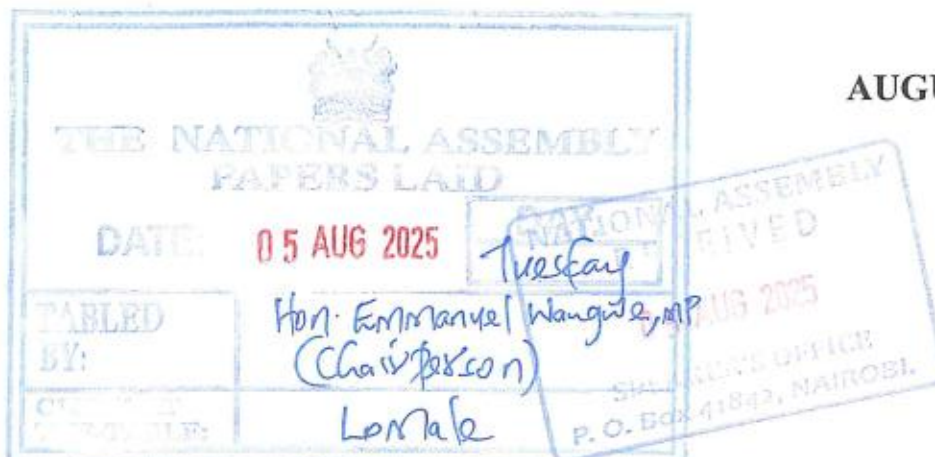 AUGU
THE NATIONAL ASSEMBLY
PAPERS LAID
DATE: 05 AUG 2025
DAY:
Tuesday
TABLED
BY:
Hon. Emmanuel Wangwe, MP
(Chairperson)
NATIONAL ASSEMBLY
RECEIVED
AUG 2025
SPEAKER'S OFFICE
P. O. Box 41842, NAIROBI.